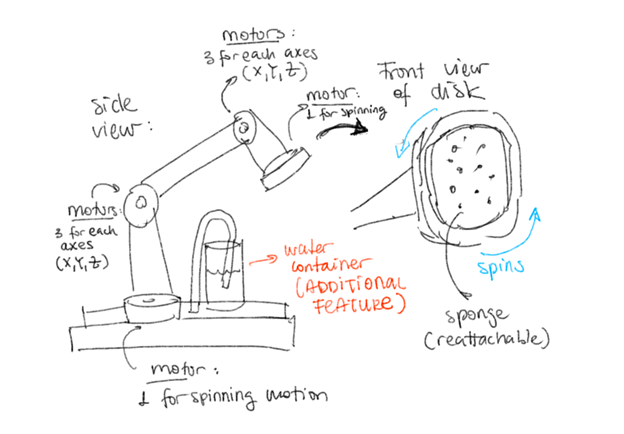 motors:
3 for each axes
(X,Y,Z)
Front view
of disk
side
view:
motor:
1 for spinning
motors:
3 for each
axes
(X,Y,Z)
water
container
(ADDITIONAL
FEATURE)
spins
sponge
(reattachable)
motor:
1 for spinning motion